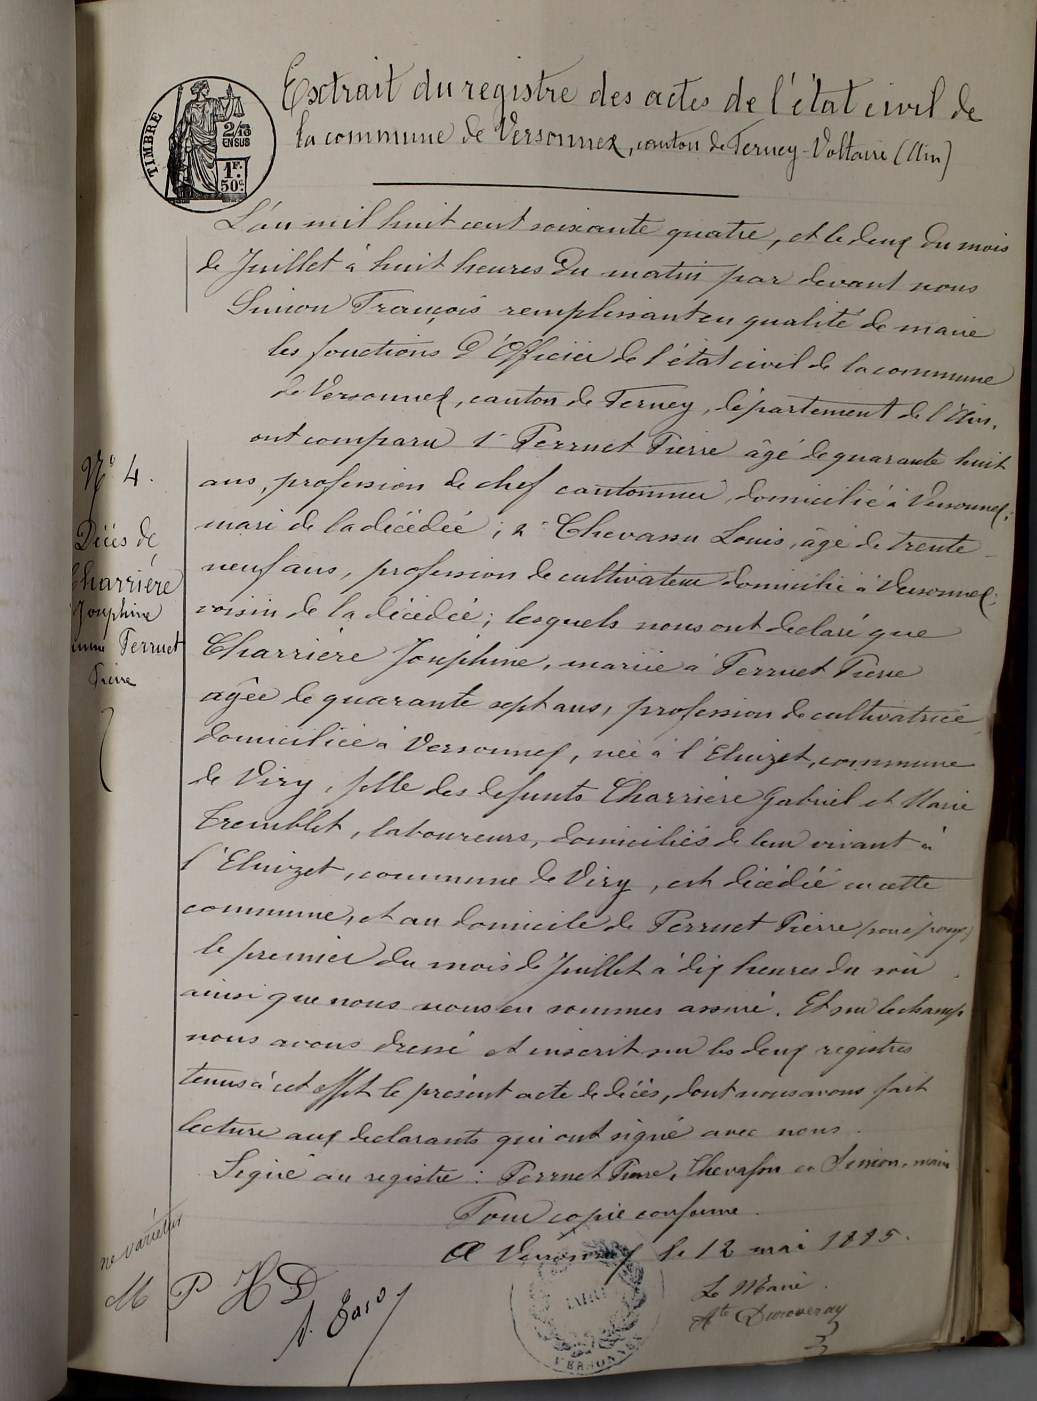 Extrait du registre des actes de l'état civil de
la commune de Versonnex, canton de Ferney-Voltaire (Ain)
TIMBRE
2/10
EN SUS
1F.
50c.
L'an mil huit cent soixante quatre, et le deux du mois
de Juillet à huit heures du matin par devant nous
Simon François remplissant en qualité de maire
les fonctions d'Officier de l'état civil de la commune
de Versonnex, canton de Ferney, département de l'Ain,
ont comparu 1° Perruet Pierre âgé de quarante huit
ans, profession de chef cantonnier, domicilié à Versonnex;
mari de la décédée; 2° Chevassu Louis, âgé de trente
neuf ans, profession de cultivateur domicilié à Versonnex;
voisin de la décédée; lesquels nous ont déclaré que
Charrière Joséphine, mariée à Perruet Pierre
agée de quarante sept ans, profession de cultivatrice
domiciliée à Versonnex, née à l'Eluizet, commune
de Viry, fille des défunts Charrière Gabriel et Marie
Tremblet, laboureurs, domiciliés de leur vivant à
l'Eluizet, commune de Viry, est décédée en cette
commune, et au domicile de Perruet Pierre (son époux)
le premier du mois de Juillet à dix heures du soir
ainsi que nous nous en sommes assuré. Et sur le champ
nous avons dressé et inscrit sur les deux registres
tenus à cet effet le présent acte de décès, dont nous avons fait
lecture aux déclarants qui ont signé avec nous.
Signé au registre : Perruet Pierre, Chevassu et Simon, maire
Pour copie conforme.
A Versonnex le 12 mai 1885.
Le Maire.
N° 4.
Décès de
Charrière
Joséphine
femme Perruet
Pierre
ne varietur
M P H D
MAIRIE
VERSONNEX